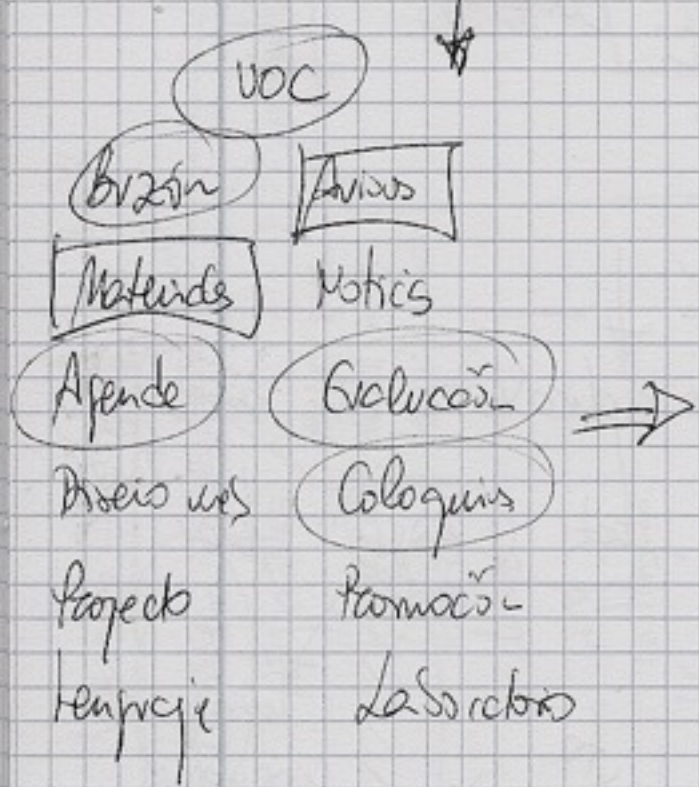 VOC
Buzón Avisos
Materiales Noticias
Agenda Evaluación
Diseño web Coloquios
Proyecto Promoción
Lenguaje Laboratorio